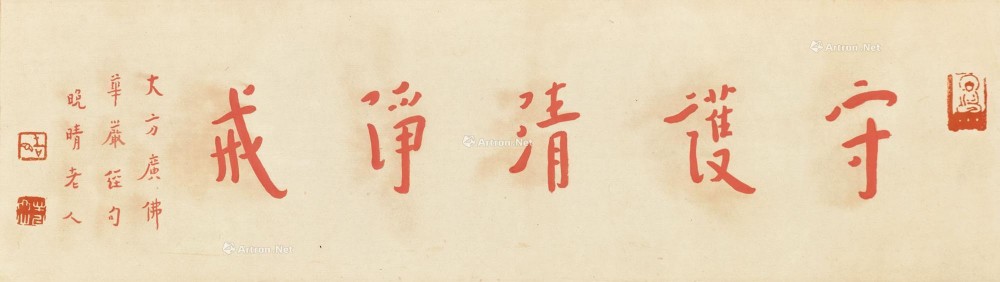 守護清淨戒
大方廣佛
華嚴經句
晚晴老人
Artron.Net
Artron.Net
Artron.Net